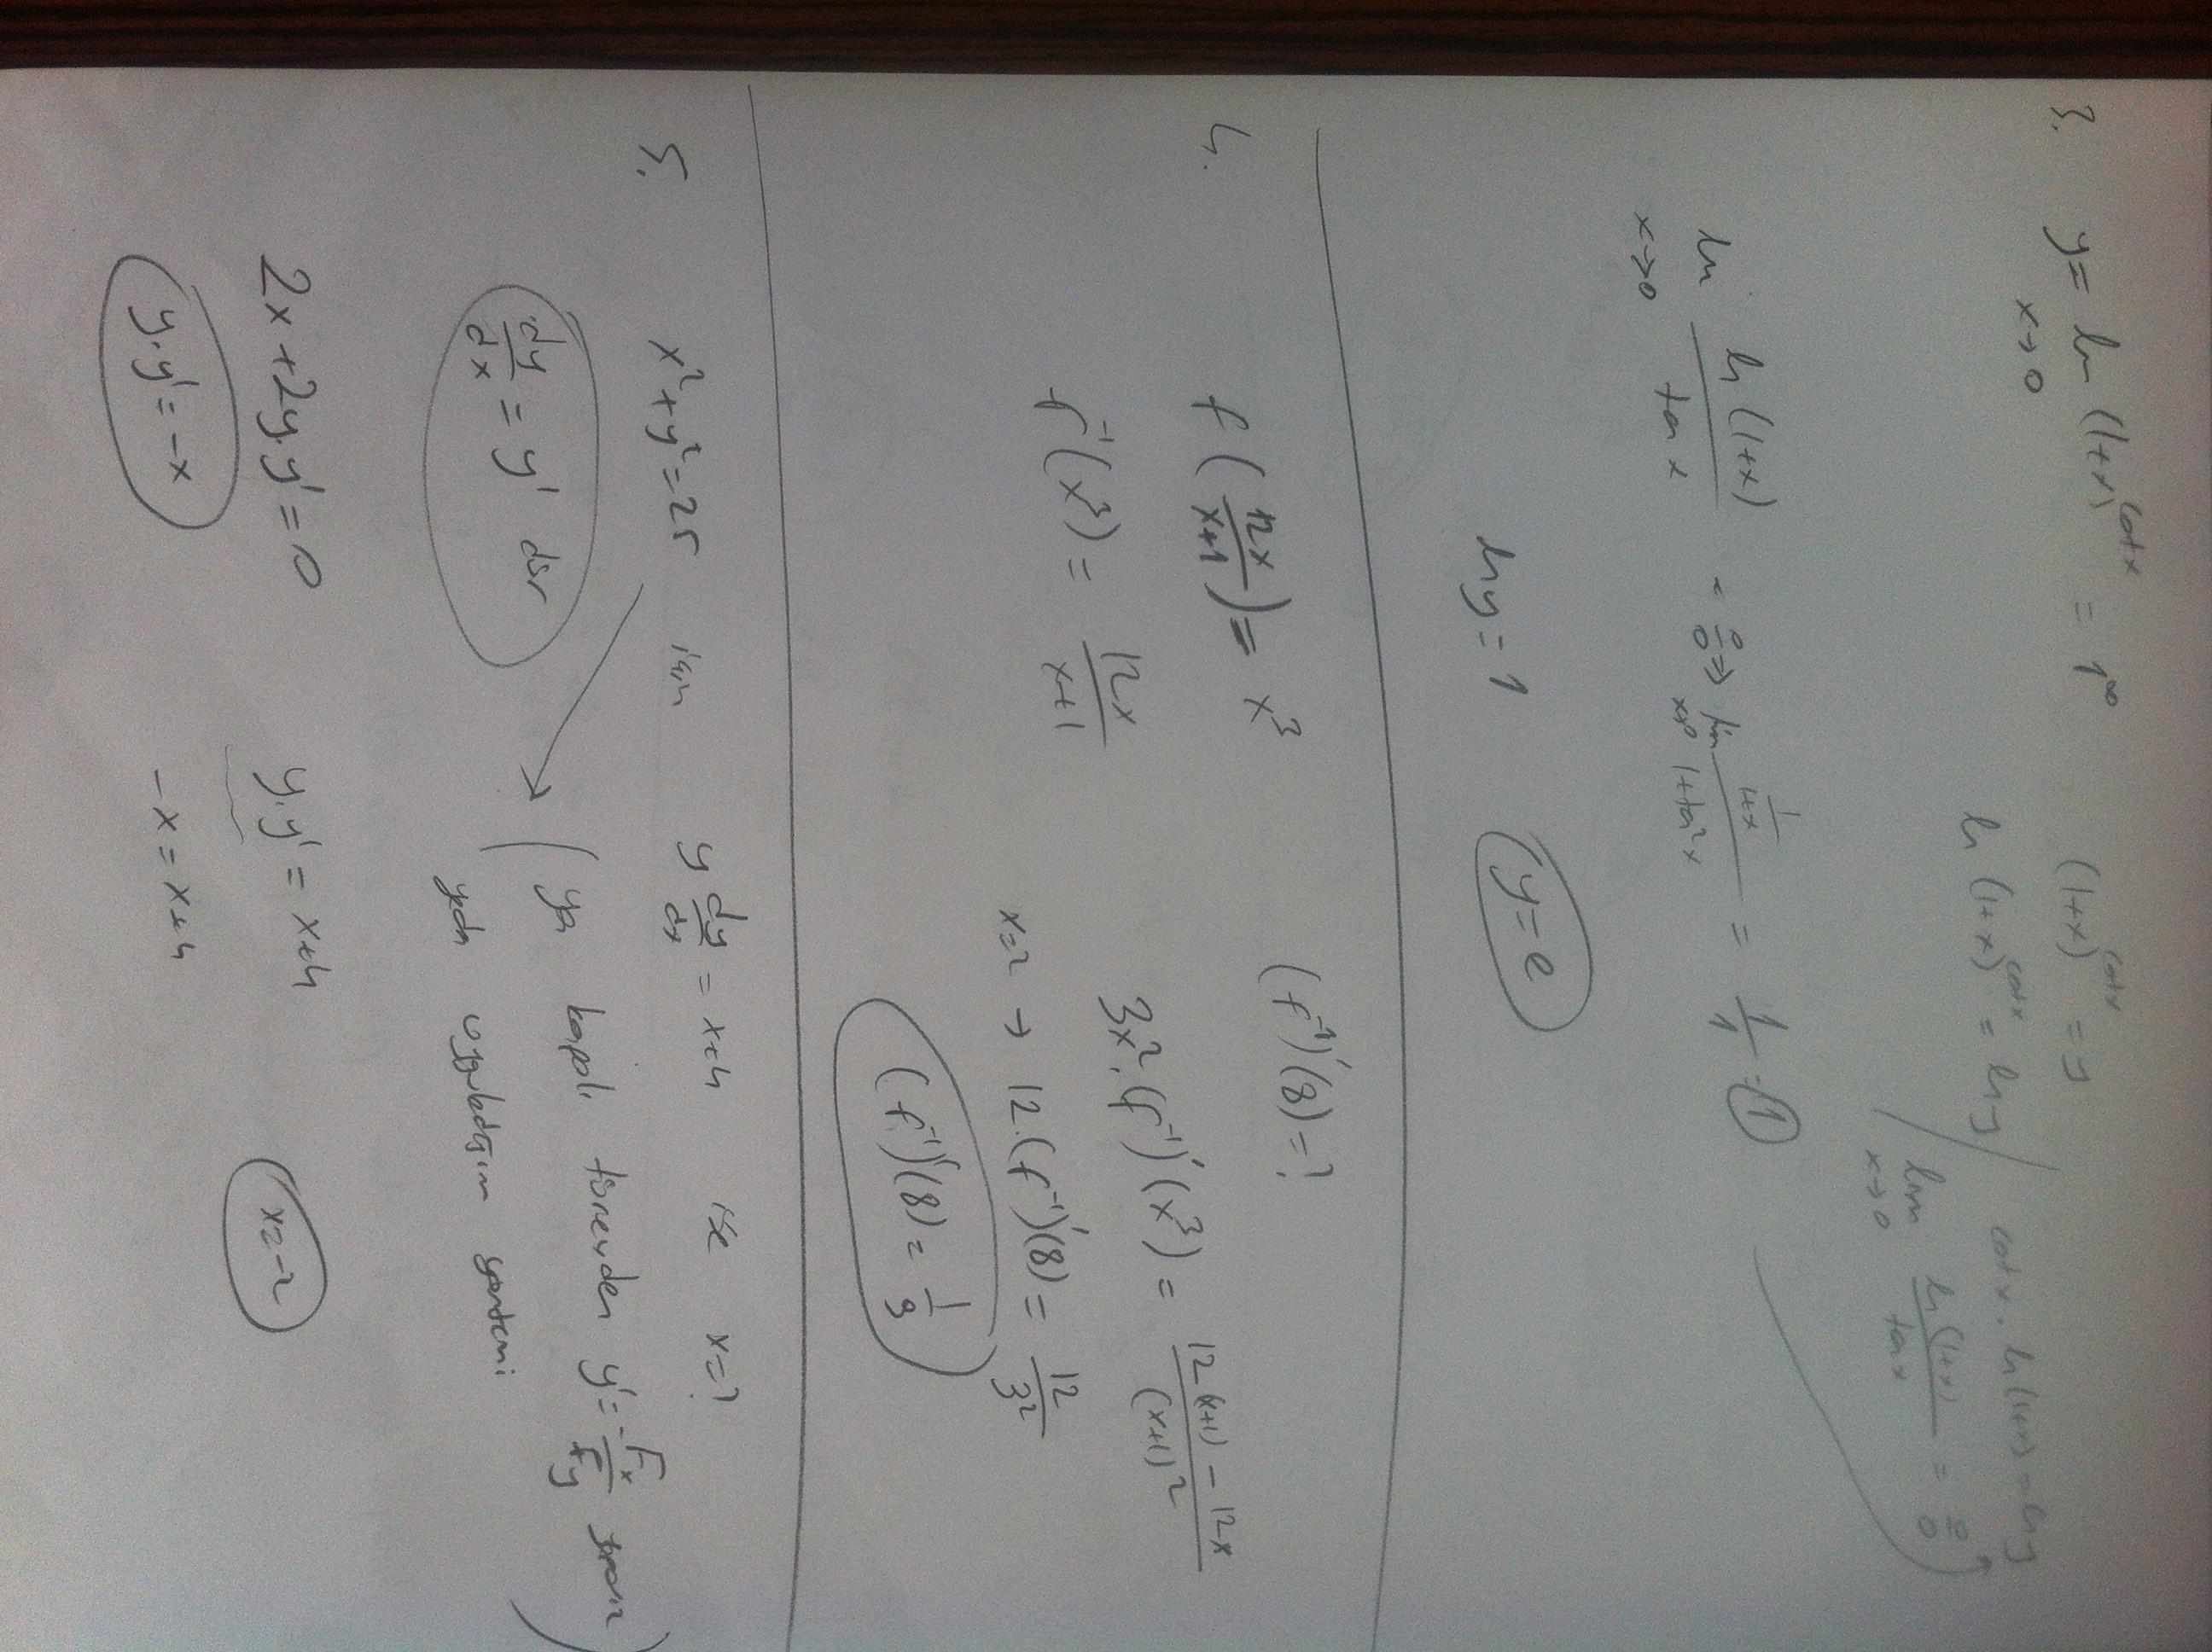 3. y = lim (1+x)^cotx = 1^∞   (1+x)^cotx = y
x→0
ln (1+x)^cotx = ln y / cotx . ln(1+x) = ln y
lim ln(1+x) / tan x = 0/0
x→0
lim ln(1+x) / tan x = 0/0 ⇒ lim (1/(1+x)) / (1+tan²x) = 1/1 = 1
x→0   x→0
ln y = 1   y = e
4. f(12x/(x+1)) = x³   (f⁻¹)'(8) = ?
f⁻¹(x³) = 12x/(x+1)   3x².(f⁻¹)'(x³) = (12(x+1) - 12x)/(x+1)²
x=2 → 12.(f⁻¹)'(8) = 12/3²
(f⁻¹)'(8) = 1/9
5. x²+y²=25 için   y dy/dx = x+4   ise   x=?
dy/dx = y' dür   (ya kapalı türevden y' = -Fx/Fy
yada uyguladığım yöntemi
2x+2y.y' = 0   y.y' = x+4   x=-2
y.y' = -x   -x = x+4